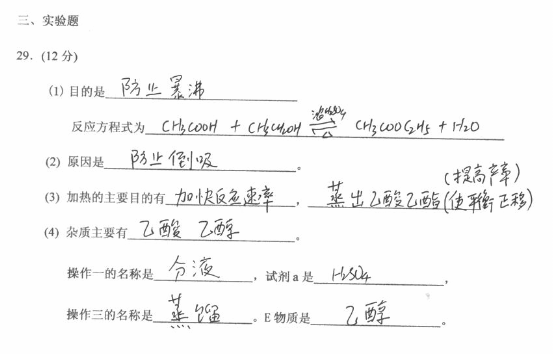 三、实验题
29. (12 分)
(1) 目的是 防止暴沸
浓H₂SO₄
反应方程式为 CH₃COOH + CH₃CH₂OH ⇌ CH₃COOC₂H₅ + H₂O
△
(2) 原因是 防止倒吸 。
(提高产率)
(3) 加热的主要目的有 加快反应速率 , 蒸出乙酸乙酯(使平衡正移)
(4) 杂质主要有 乙酸 乙醇 。
操作一的名称是 分液 , 试剂 a 是 H₂SO₄ ,
操作三的名称是 蒸馏 。E 物质是 乙醇 。